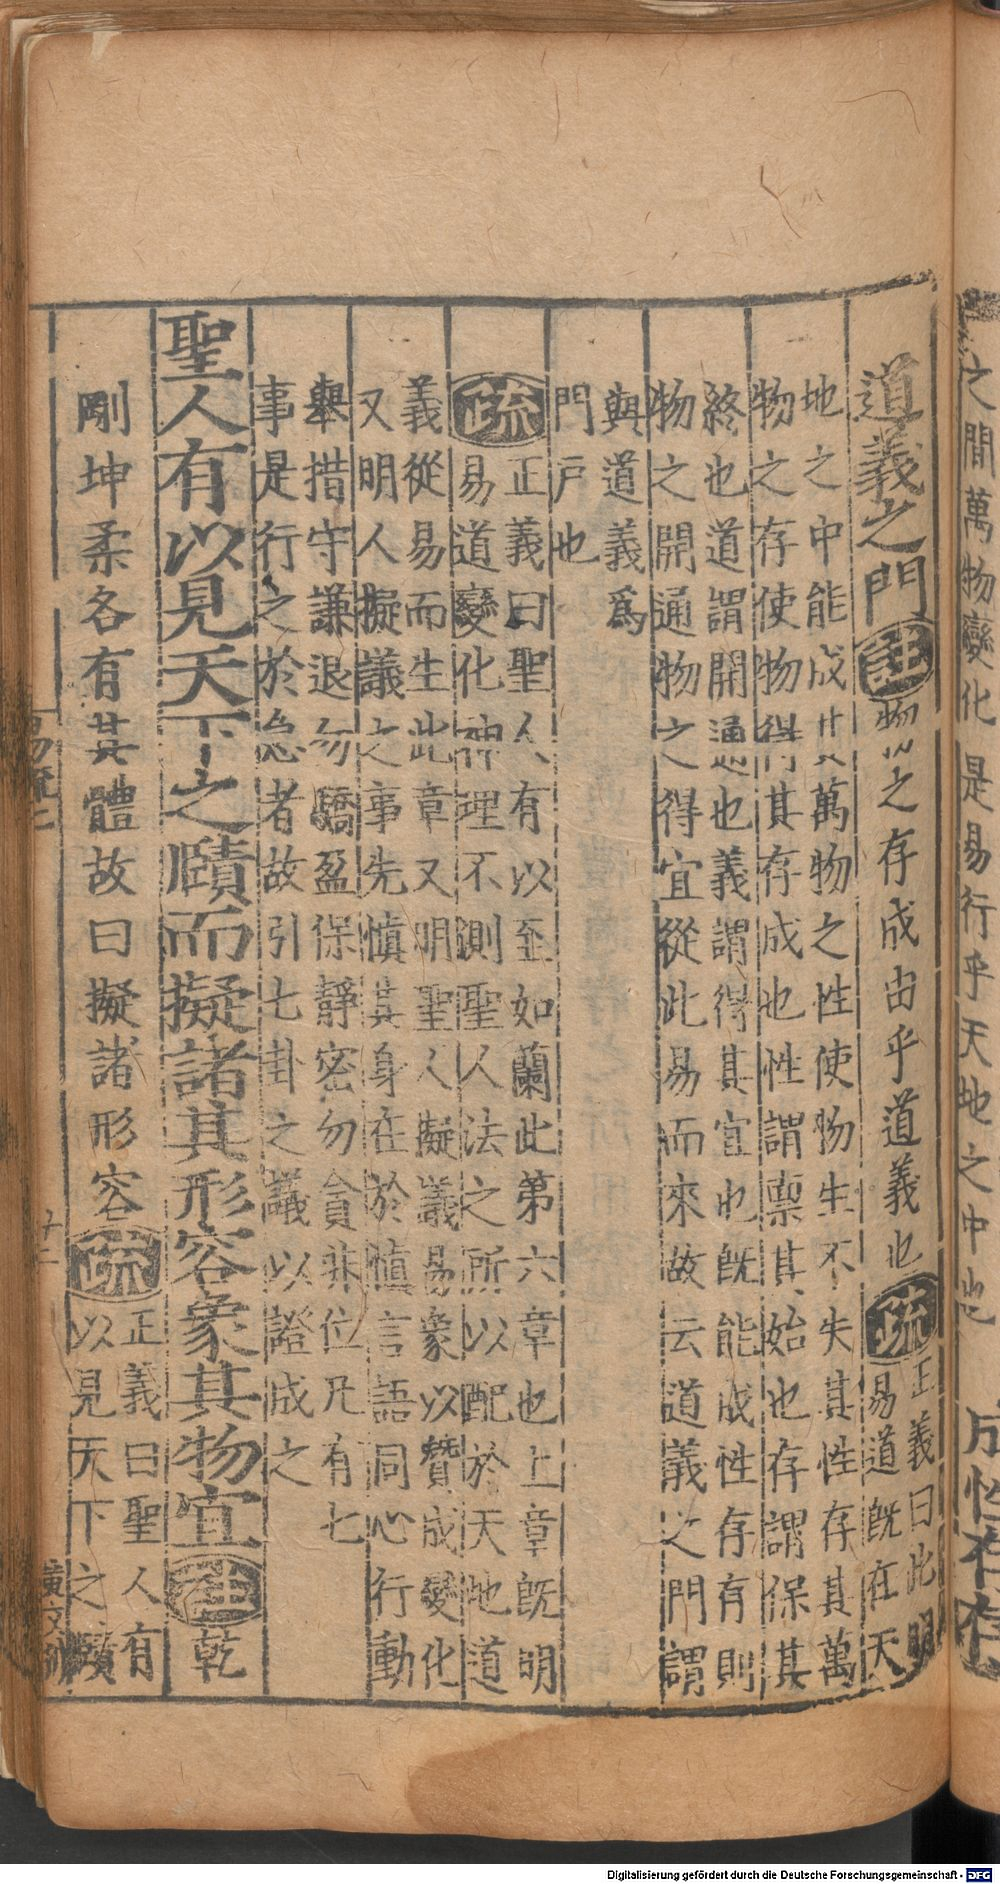 之間萬物變化是易行乎天地之中也　成性存存
道義之門註物之存成由乎道義也疏正義曰此明
易道旣在天
地之中能成其萬物之性使物生不失其性存其萬
物之存使物得其存成也性謂稟其始也存謂保其
終也道謂開通也義謂得其宜也旣能成性存有則
物之開通物之得宜從此易而來故云道義之門謂
與道義爲
門戸也
疏正義曰聖人有以至如蘭此第六章也上章旣明
易道變化神理不測聖人法之所以配於天地道
義從易而生此章又明聖人擬議易象以贊成變化
又明人擬議之事先慎其身在於慎言語同心行動
舉措守謙退勿驕盈保靜密勿貪非位凡有七
事是行之於急者故引七卦之議以證成之
聖人有以見天下之賾而擬諸其形容象其物宜註乾
剛坤柔各有其體故曰擬諸形容疏正義曰聖人有
以見天下之賾
易疏七
十二
Digitalisierung gefördert durch die Deutsche Forschungsgemeinschaft - DFG